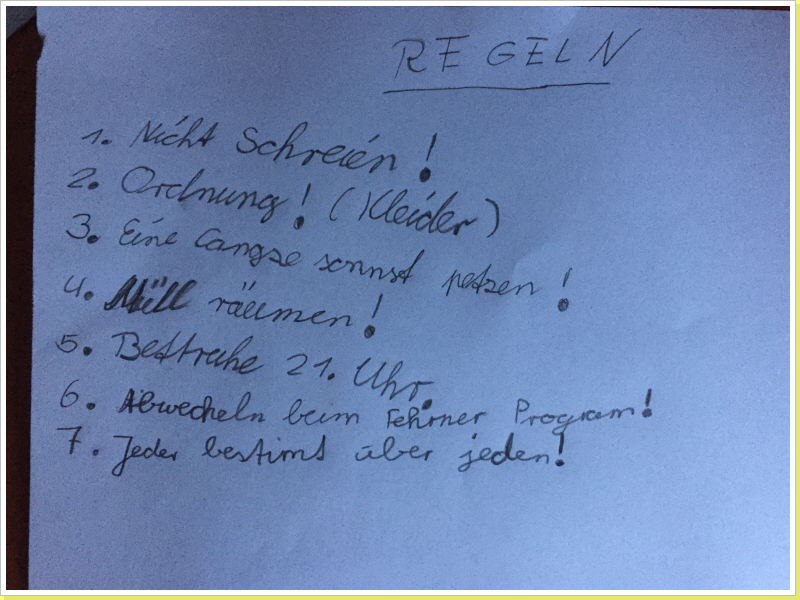 REGELN
1. Nicht Schreien!
2. Ordnung! (Kleider)
3. Eine Cangze sonnst petzen!
4. Müll räumen!
5. Bettruhe 21. Uhr.
6. Abwecheln beim Fehrner Program!
7. Jeder bestimt über jeden!